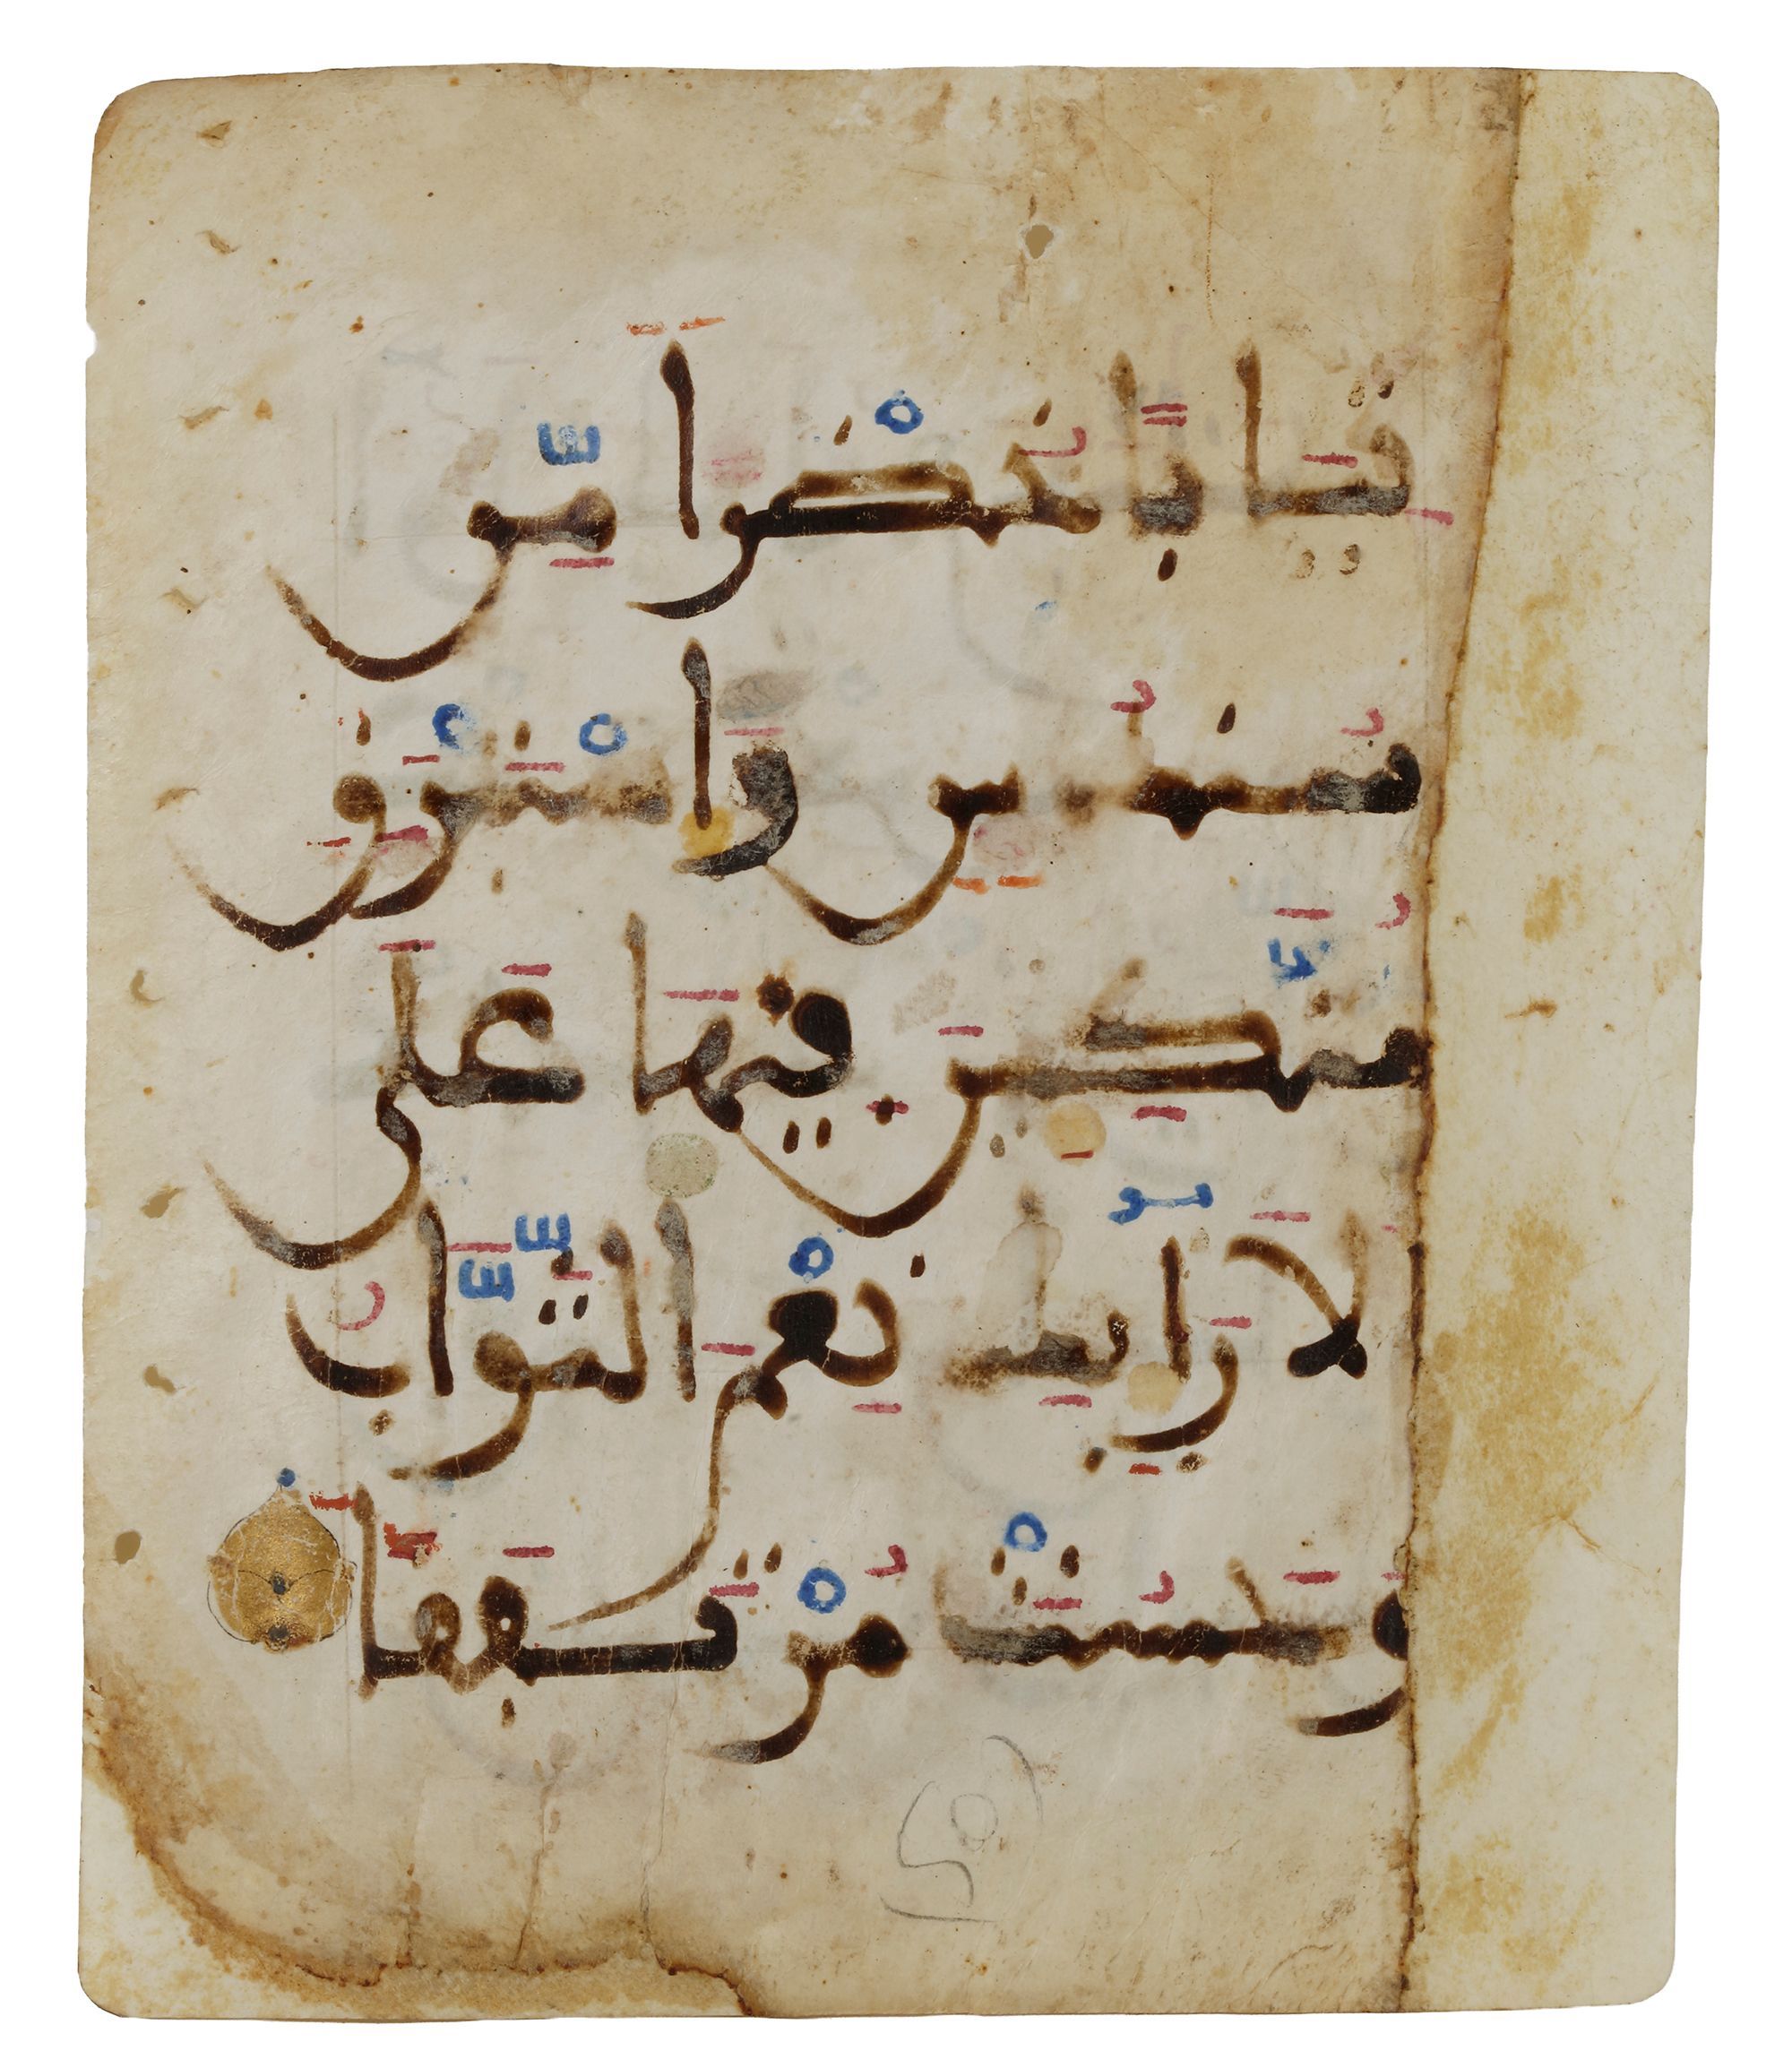 ثِيَابًا خُضْرًا مِّن
سُندُسٍ وَإِسْتَبْرَقٍ
مُّتَّكِـِٔينَ فِيهَا عَلَى
الَارَآئِكِ نِعْمَ الثَّوَابُ
وَحَسُنَتْ مُرْتَفَقًا